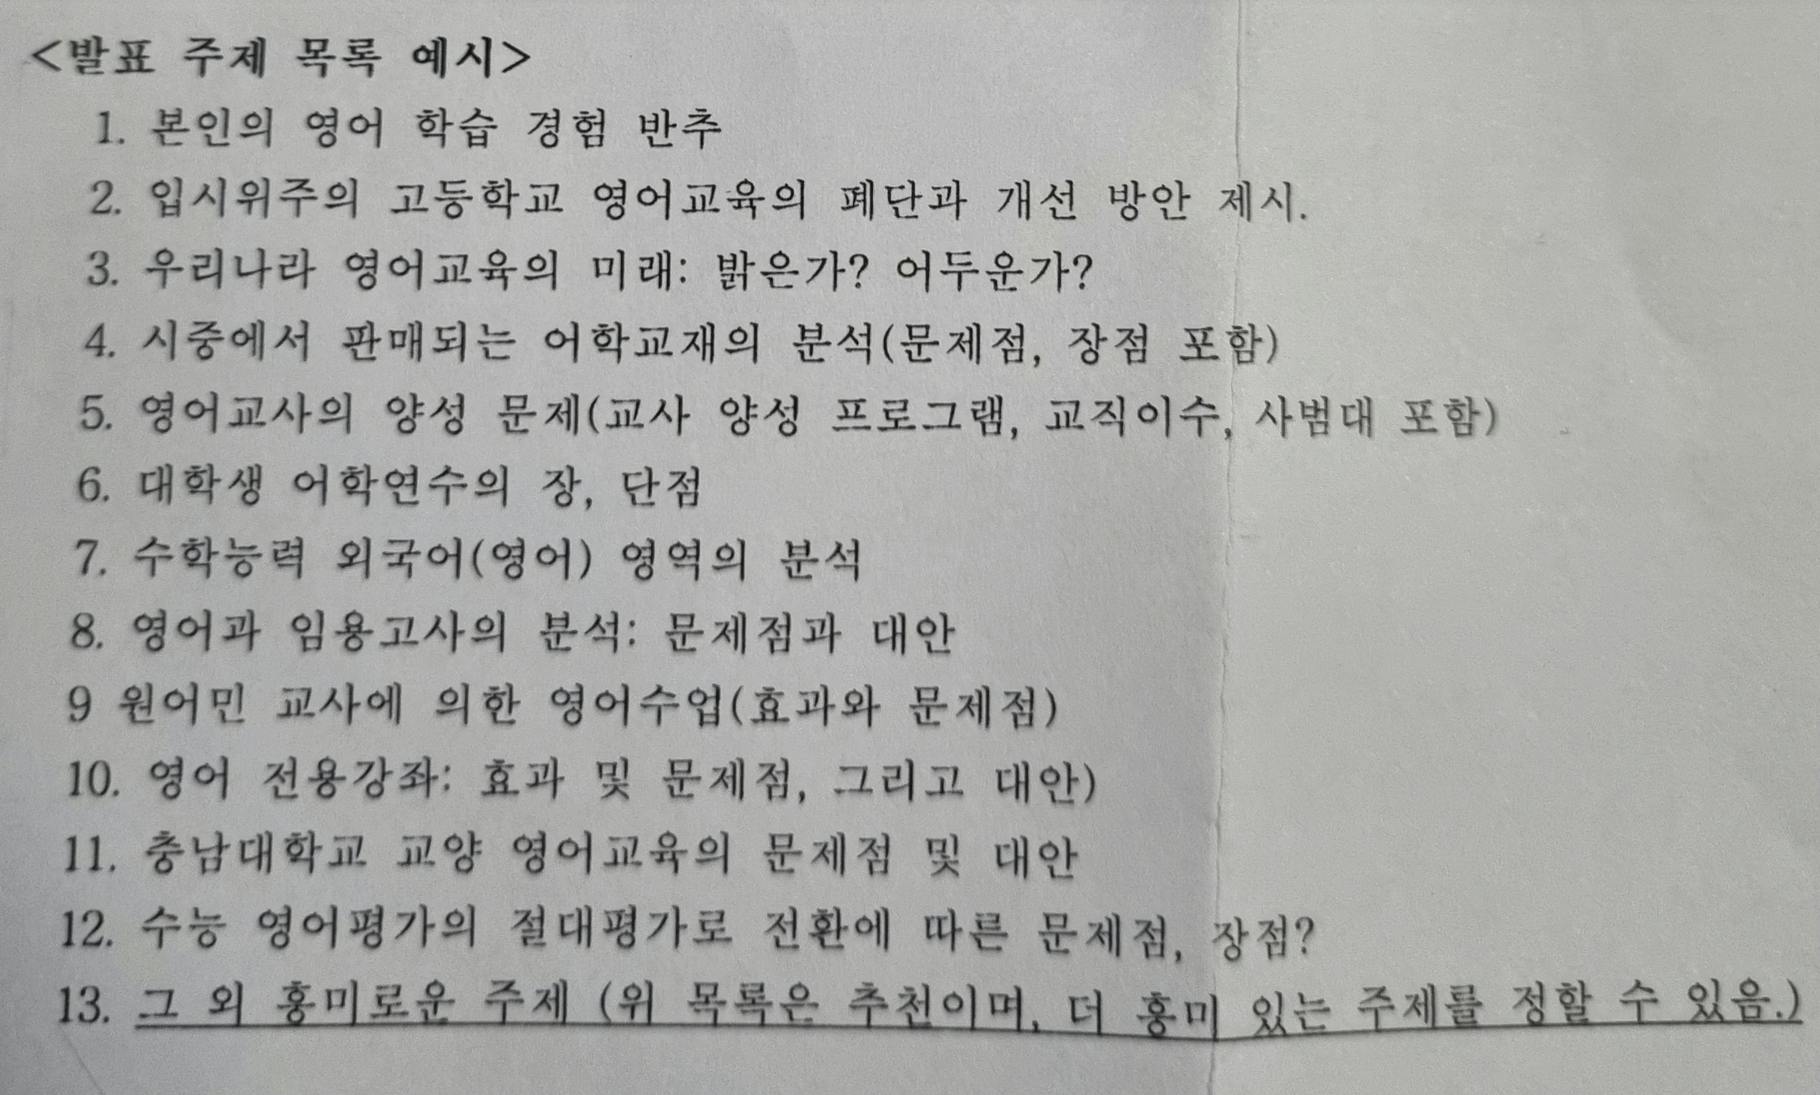 <발표 주제 목록 예시>
1. 본인의 영어 학습 경험 반추
2. 입시위주의 고등학교 영어교육의 폐단과 개선 방안 제시.
3. 우리나라 영어교육의 미래: 밝은가? 어두운가?
4. 시중에서 판매되는 어학교재의 분석(문제점, 장점 포함)
5. 영어교사의 양성 문제(교사 양성 프로그램, 교직이수, 사범대 포함)
6. 대학생 어학연수의 장, 단점
7. 수학능력 외국어(영어) 영역의 분석
8. 영어과 임용고사의 분석: 문제점과 대안
9 원어민 교사에 의한 영어수업(효과와 문제점)
10. 영어 전용강좌: 효과 및 문제점, 그리고 대안)
11. 충남대학교 교양 영어교육의 문제점 및 대안
12. 수능 영어평가의 절대평가로 전환에 따른 문제점, 장점?
13. 그 외 흥미로운 주제 (위 목록은 추천이며, 더 흥미 있는 주제를 정할 수 있음.)